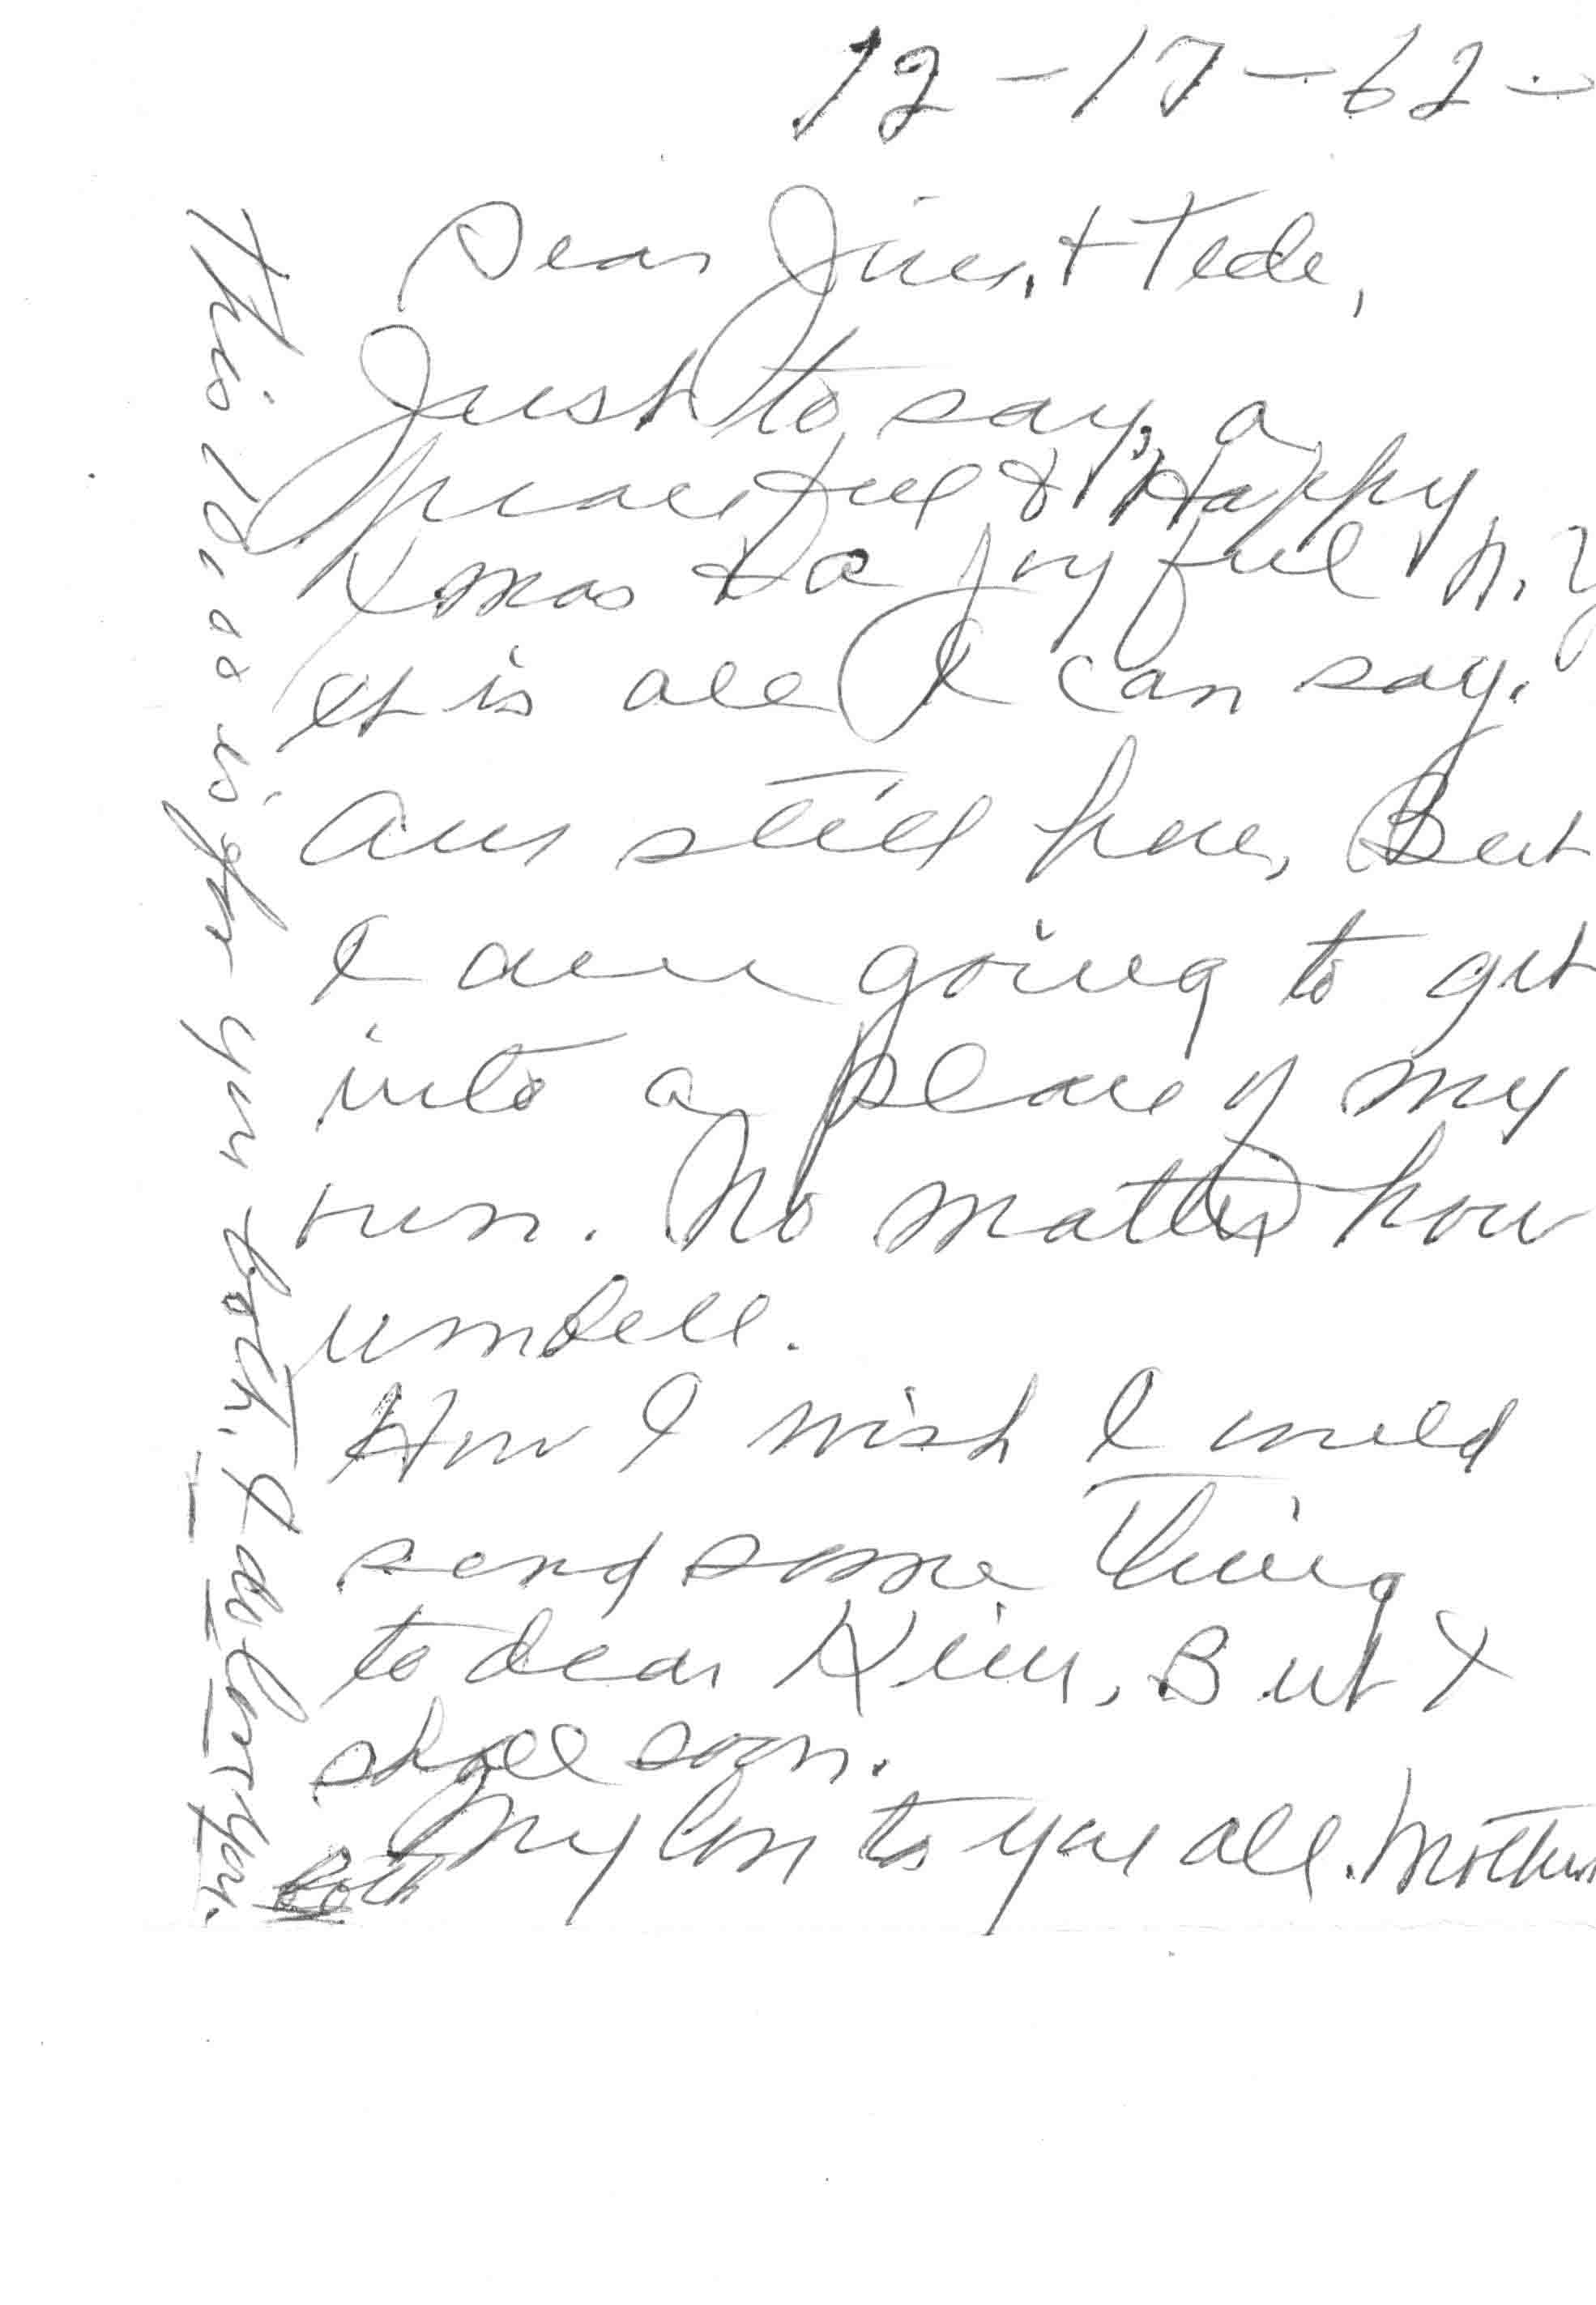 12-17-62-
Dear Jim, + Tede,
Just to say, a
peaceful & Happy
Xmas & a joyful N. Y
It is all I can say.
Am still here, But
I am going to get
into a place of my
own. No matter how
small.
How I wish I could
send some thing
to dear Kim, But I
shall soon.
My love to you all. Mother
This is for you both. I do love you.
both